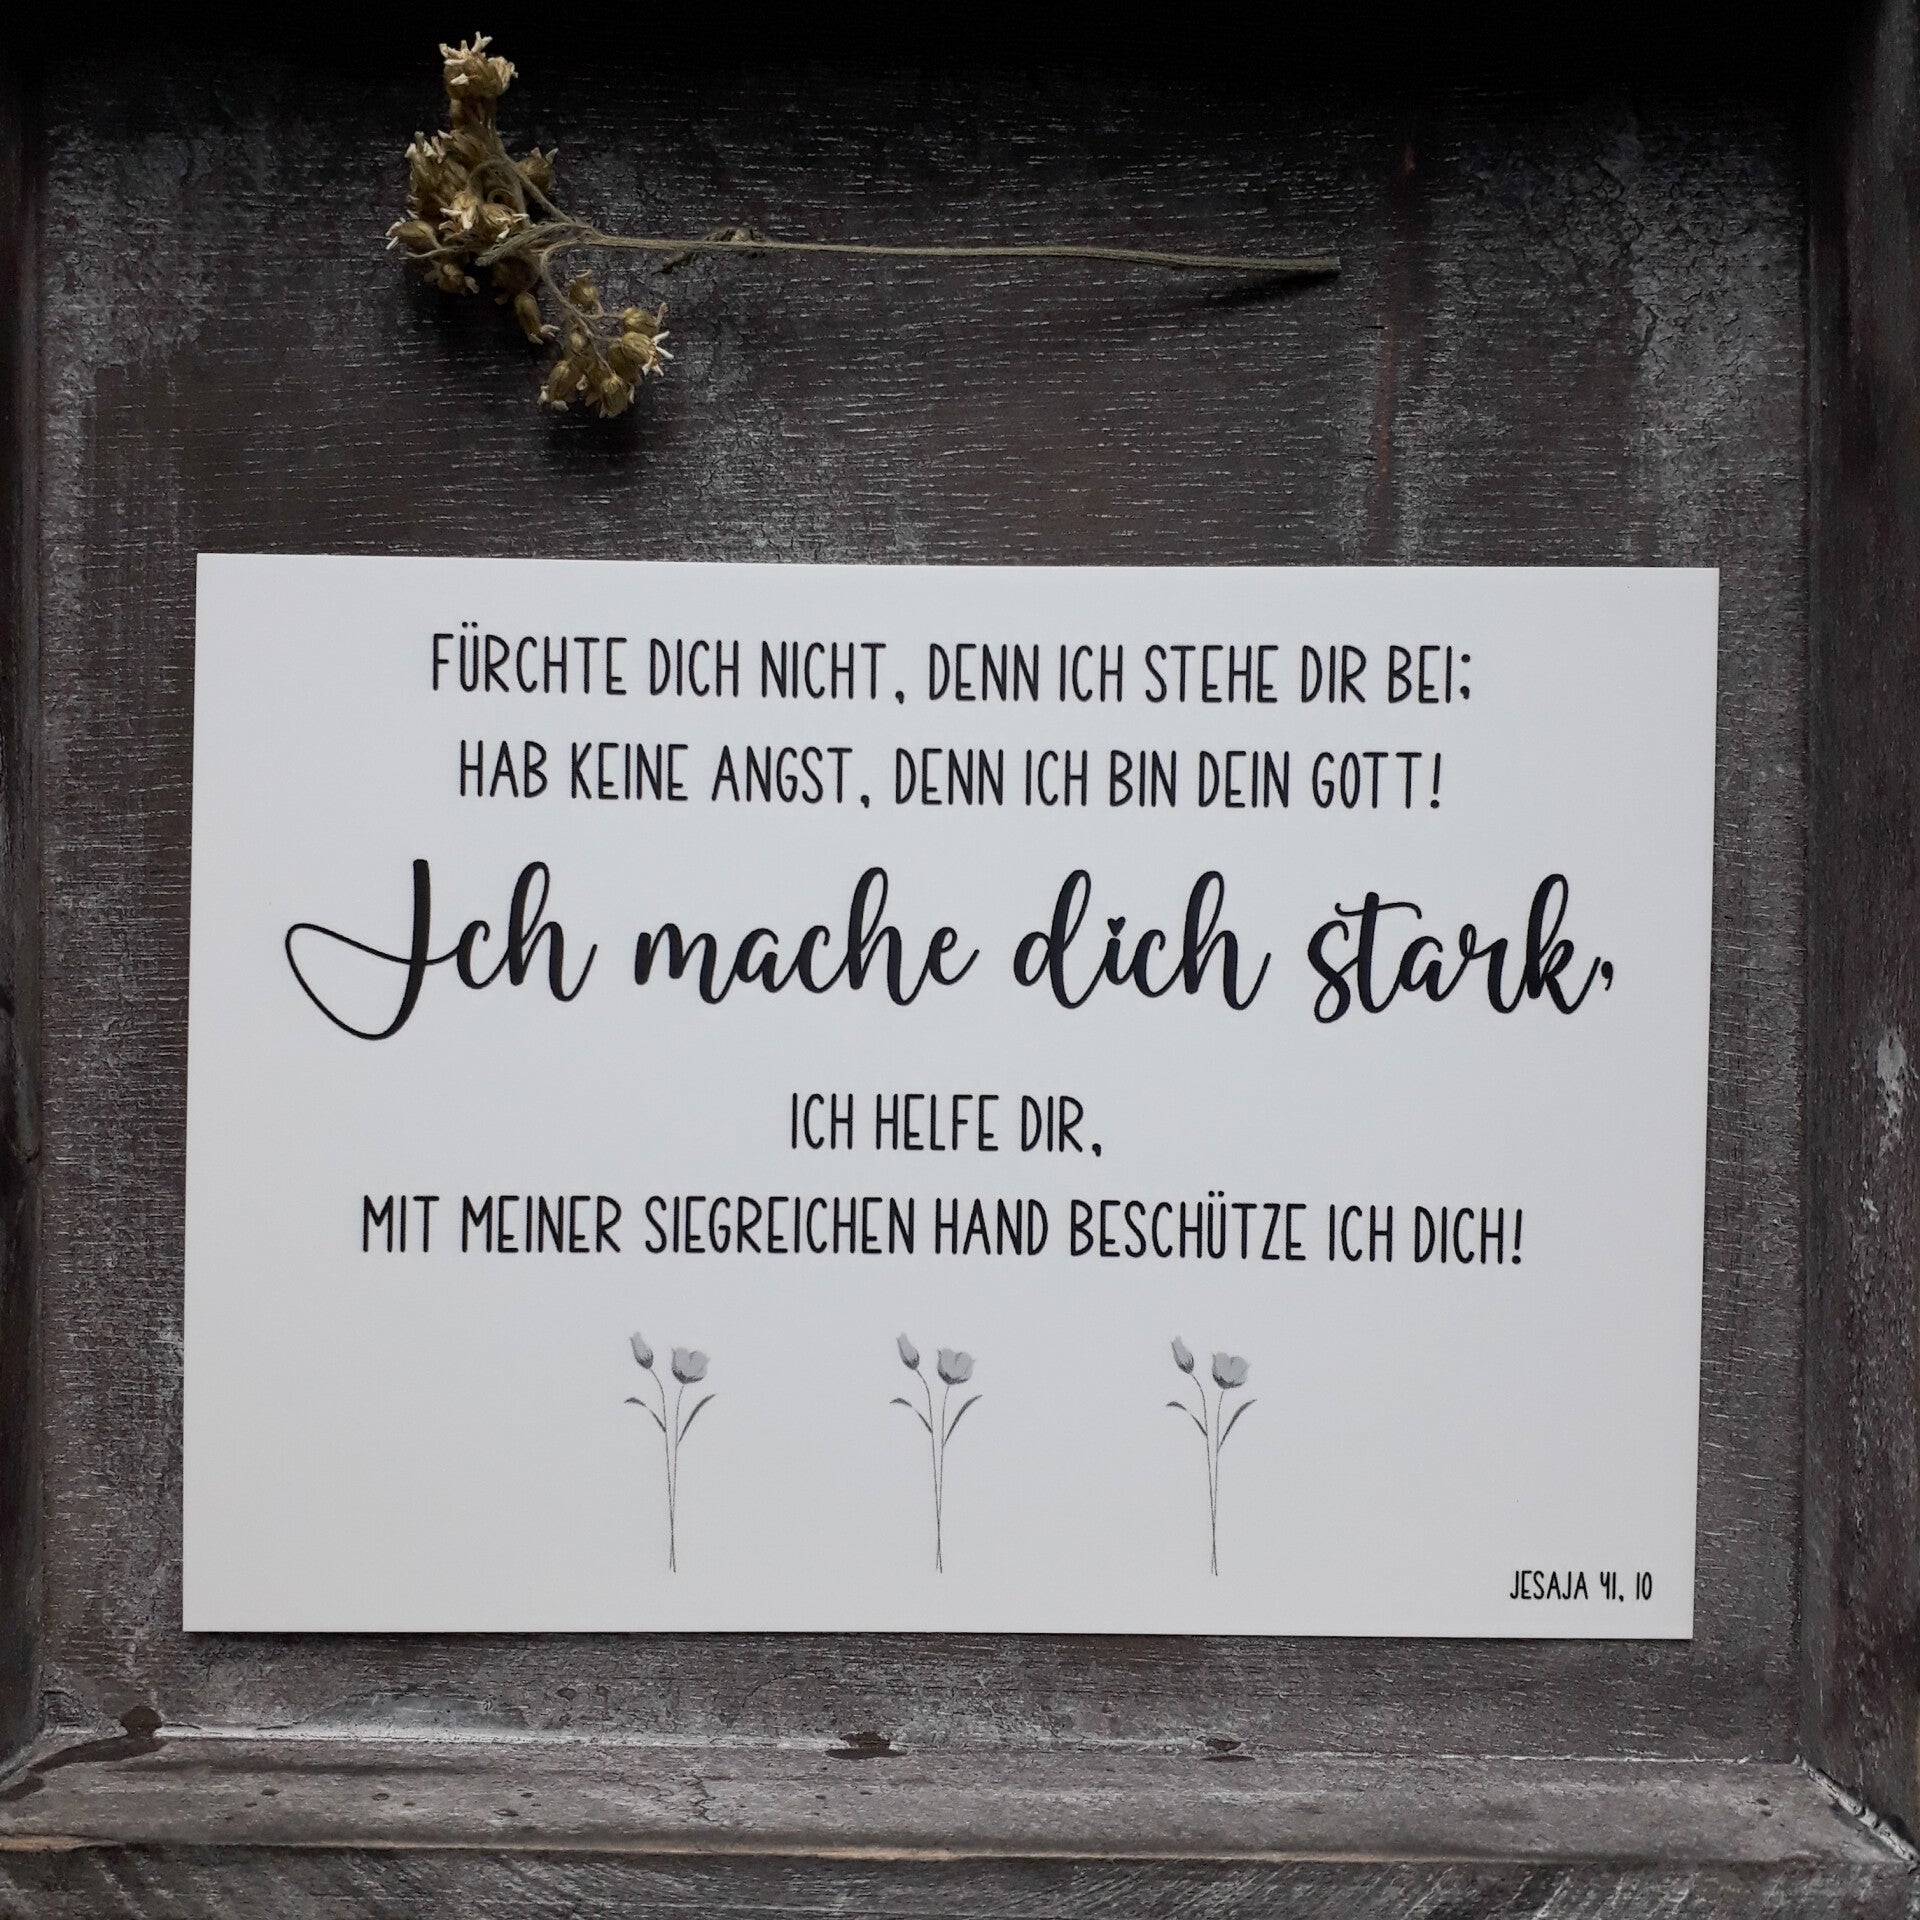 FÜRCHTE DICH NICHT, DENN ICH STEHE DIR BEI;
HAB KEINE ANGST, DENN ICH BIN DEIN GOTT!
Ich mache dich stark,
ICH HELFE DIR,
MIT MEINER SIEGREICHEN HAND BESCHÜTZE ICH DICH!
JESAJA 41, 10